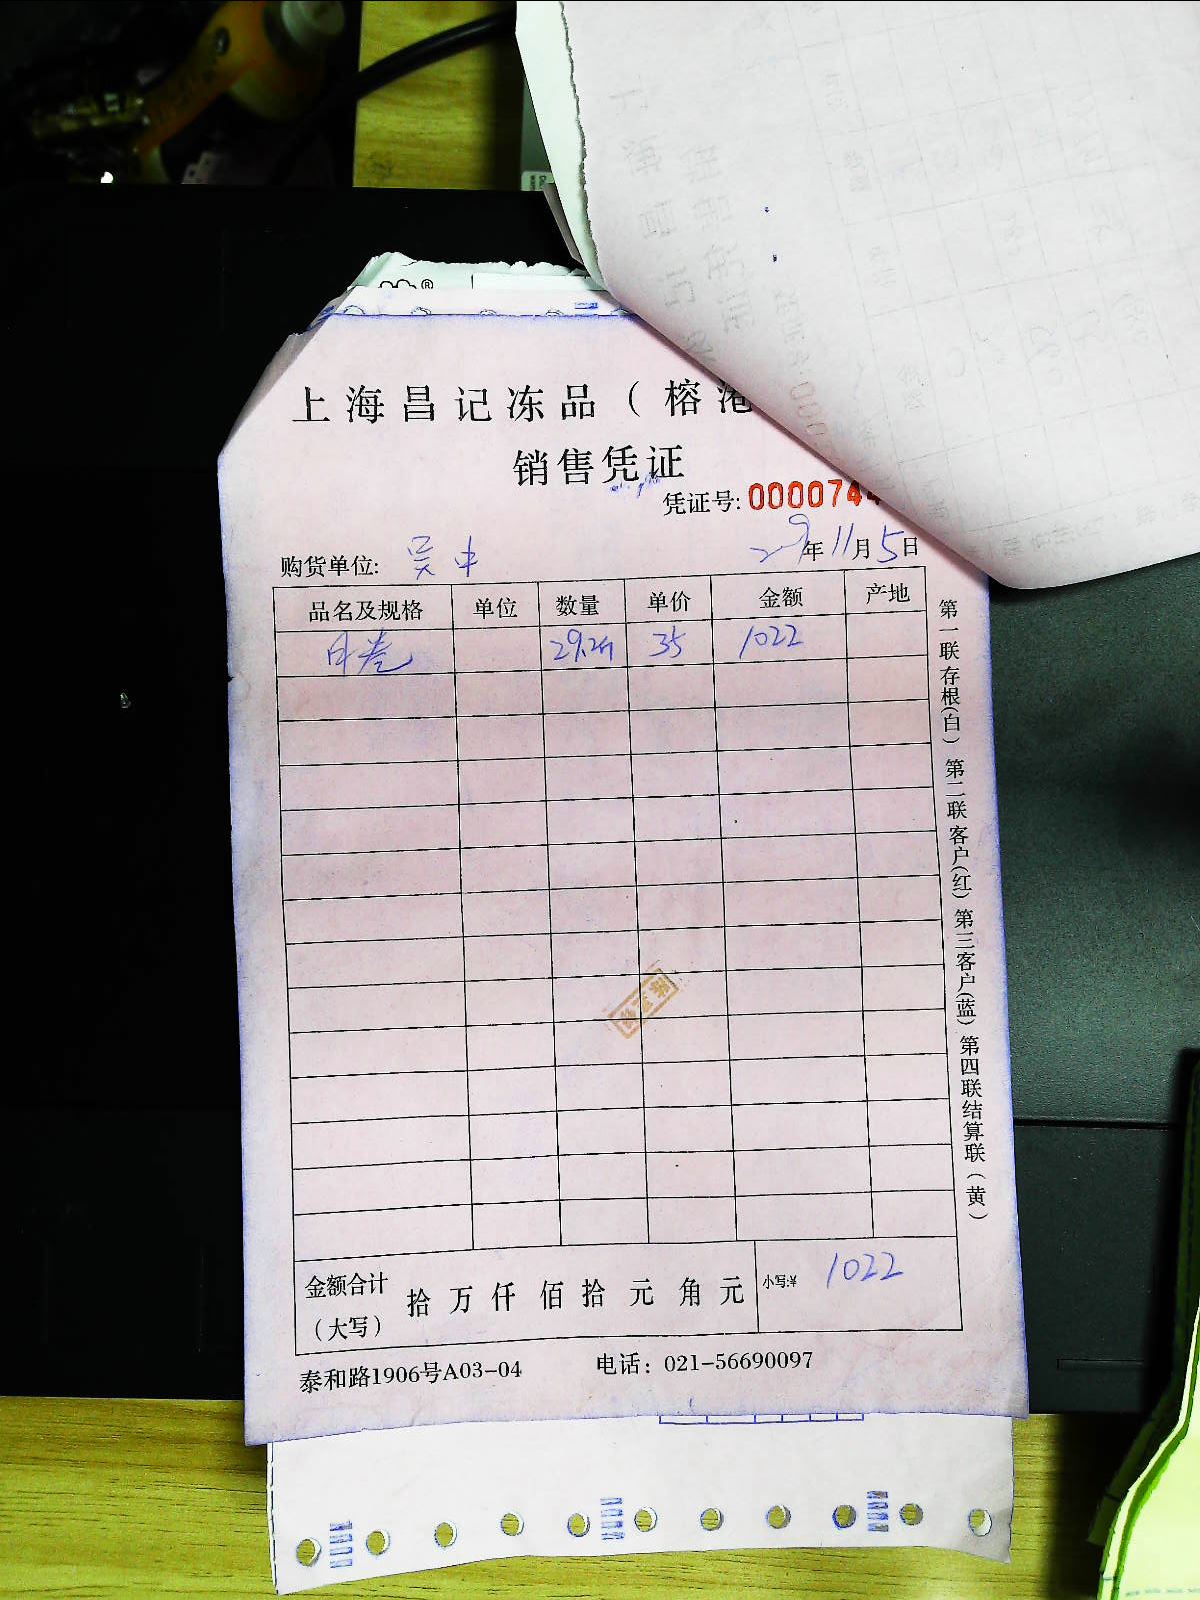 上海昌记冻品（榕港
销售凭证
凭证号: 0000744
购货单位: 吴中 29年11月5日
品名及规格 单位 数量 单价 金额 产地
月卷 29.2斤 35 1022
金额合计（大写） 拾 万 仟 佰 拾 元 角 元 小写:¥ 1022
泰和路1906号A03-04 电话：021-56690097
第一联存根(白) 第二联客户(红) 第三客户(蓝) 第四联结算联（黄）